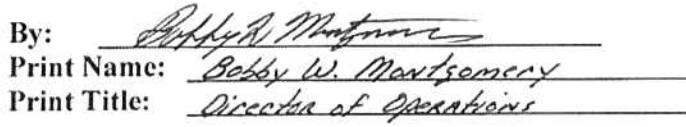 By: Bobby W Montgomery
Print Name: Bobby W. Montgomery
Print Title: Director of Operations